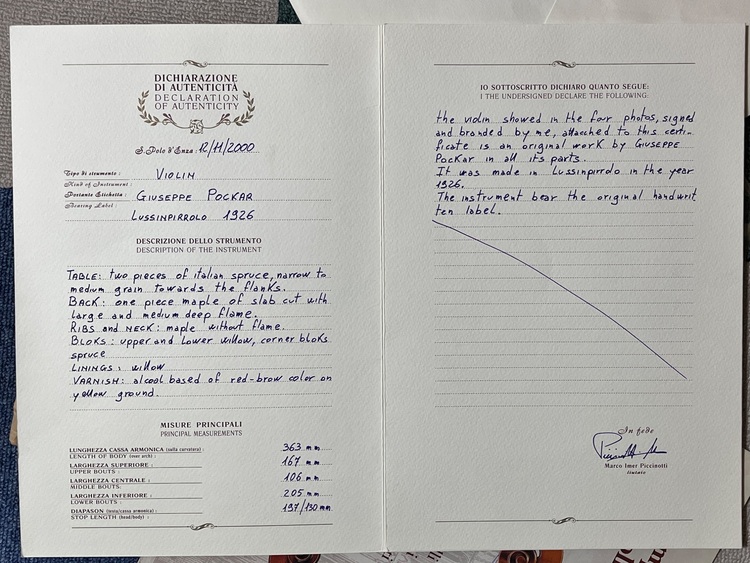 DICHIARAZIONE
DI AUTENTICITÀ
DECLARATION
OF AUTHENTICITY
S. Polo d'Enza : 12/11/2000
Tipo di strumento :
Kind of Instrument :
VIOLIN
Portante Etichetta :
Bearing Label :
GIUSEPPE POCKAR
LUSSINPIRROLO 1926
DESCRIZIONE DELLO STRUMENTO
DESCRIPTION OF THE INSTRUMENT
TABLE: two pieces of italian spruce, narrow to
medium grain towards the flanks.
BACK: one piece maple of slab cut with
large and medium deep flame.
RIBS and NECK: maple without flame.
BLOKS: upper and Lower willow, corner bloks
spruce
LININGS: willow
VARNISH: alcool based of red-brow color on
yellow ground.
MISURE PRINCIPALI
PRINCIPAL MEASUREMENTS
LUNGHEZZA CASSA ARMONICA (sulla curvatura) : 363 mm
LENGTH OF BODY (over arch) :
LARGHEZZA SUPERIORE : 167 mm
UPPER BOUTS :
LARGHEZZA CENTRALE : 106 mm
MIDDLE BOUTS:
LARGHEZZA INFERIORE : 205 mm
LOWER BOUTS :
DIAPASON (testa/cassa armonica) : 197/130 mm
STOP LENGTH (head/body) :
IO SOTTOSCRITTO DICHIARO QUANTO SEGUE:
I THE UNDERSIGNED DECLARE THE FOLLOWING:
the violin showed in the four photos, signed
and branded by me, attacched to this certi-
ficate is an original work by GIUSEPPE
POCKAR in all its parts.
It was made in Lussinpirrdo in the year
1926.
The instrument bear the original handwrit
ten label.
In fede
Marco Imer Piccinotti
liutaio